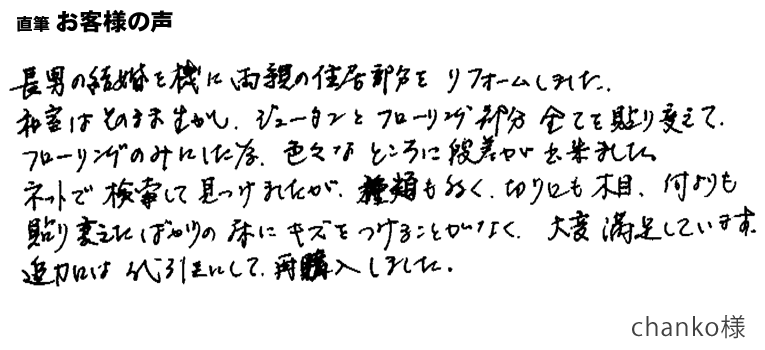 直筆 お客様の声
長男の結婚を機に両親の住居部分をリフォームしました。
和室はそのまま生かし、ジュータンとフローリング部分全てを貼り変えて、
フローリングのみにした为、色々なところに段差が出来ました。
ネットで検索して見つけましたが、種類も多く、切り口も木目、何よりも
貼り変えたばかりの床にキズをつけることがなく、大変満足しています。
追加は代引きにして、再購入しました。
chanko様